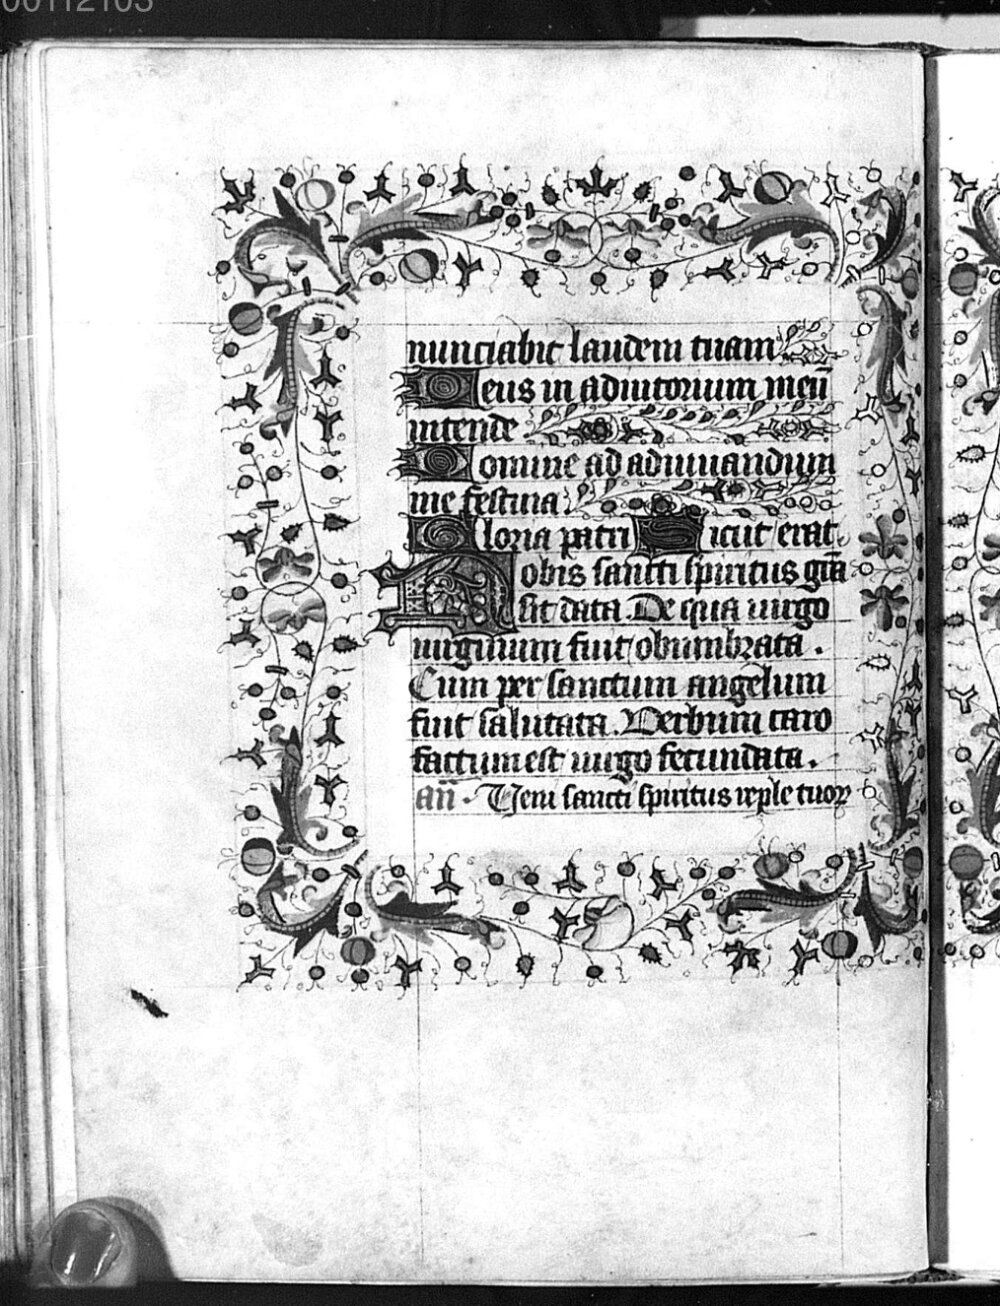 00112103
nunciabit laudem tuam
Deus in adiutorium meū
intende
Domine ad adiuuandum
me festina
Gloria patri Sicut erat
Nobis sancti spiritus gr̄a
sit data. De qua uirgo
uirginum fuit obumbrata.
Cum per sanctum angelum
fuit salutata. Verbum caro
factum est uirgo fecundata.
an̄. Veni sancti spiritus reple tuoꝝ